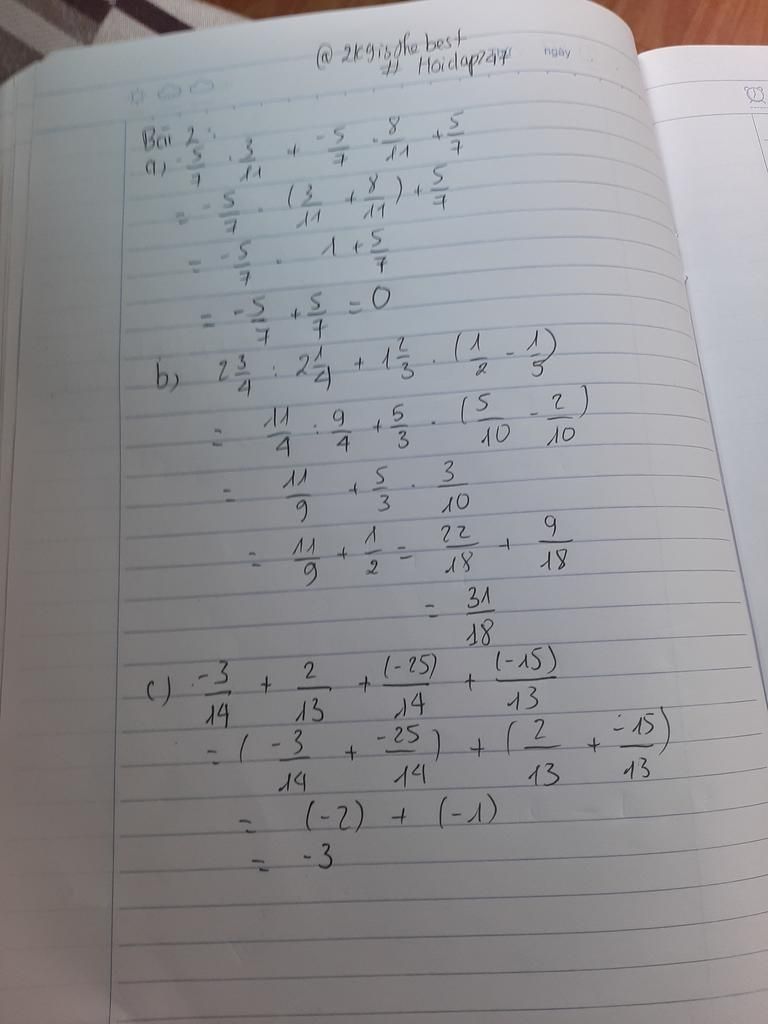 @ 2k9isthe best
ngày
# Hoidap247
Bài 2:
a) -5/7 . 3/11 + -5/7 . 8/11 + 5/7
= -5/7 . (3/11 + 8/11) + 5/7
= -5/7 . 1 + 5/7
= -5/7 + 5/7 = 0
b) 2 3/4 : 2 1/4 + 1 2/3 . (1/2 - 1/5)
= 11/4 : 9/4 + 5/3 . (5/10 - 2/10)
= 11/9 + 5/3 . 3/10
= 11/9 + 1/2 = 22/18 + 9/18
= 31/18
c) -3/14 + 2/13 + (-25)/14 + (-15)/13
= (-3/14 + -25/14) + (2/13 + -15/13)
= (-2) + (-1)
= -3